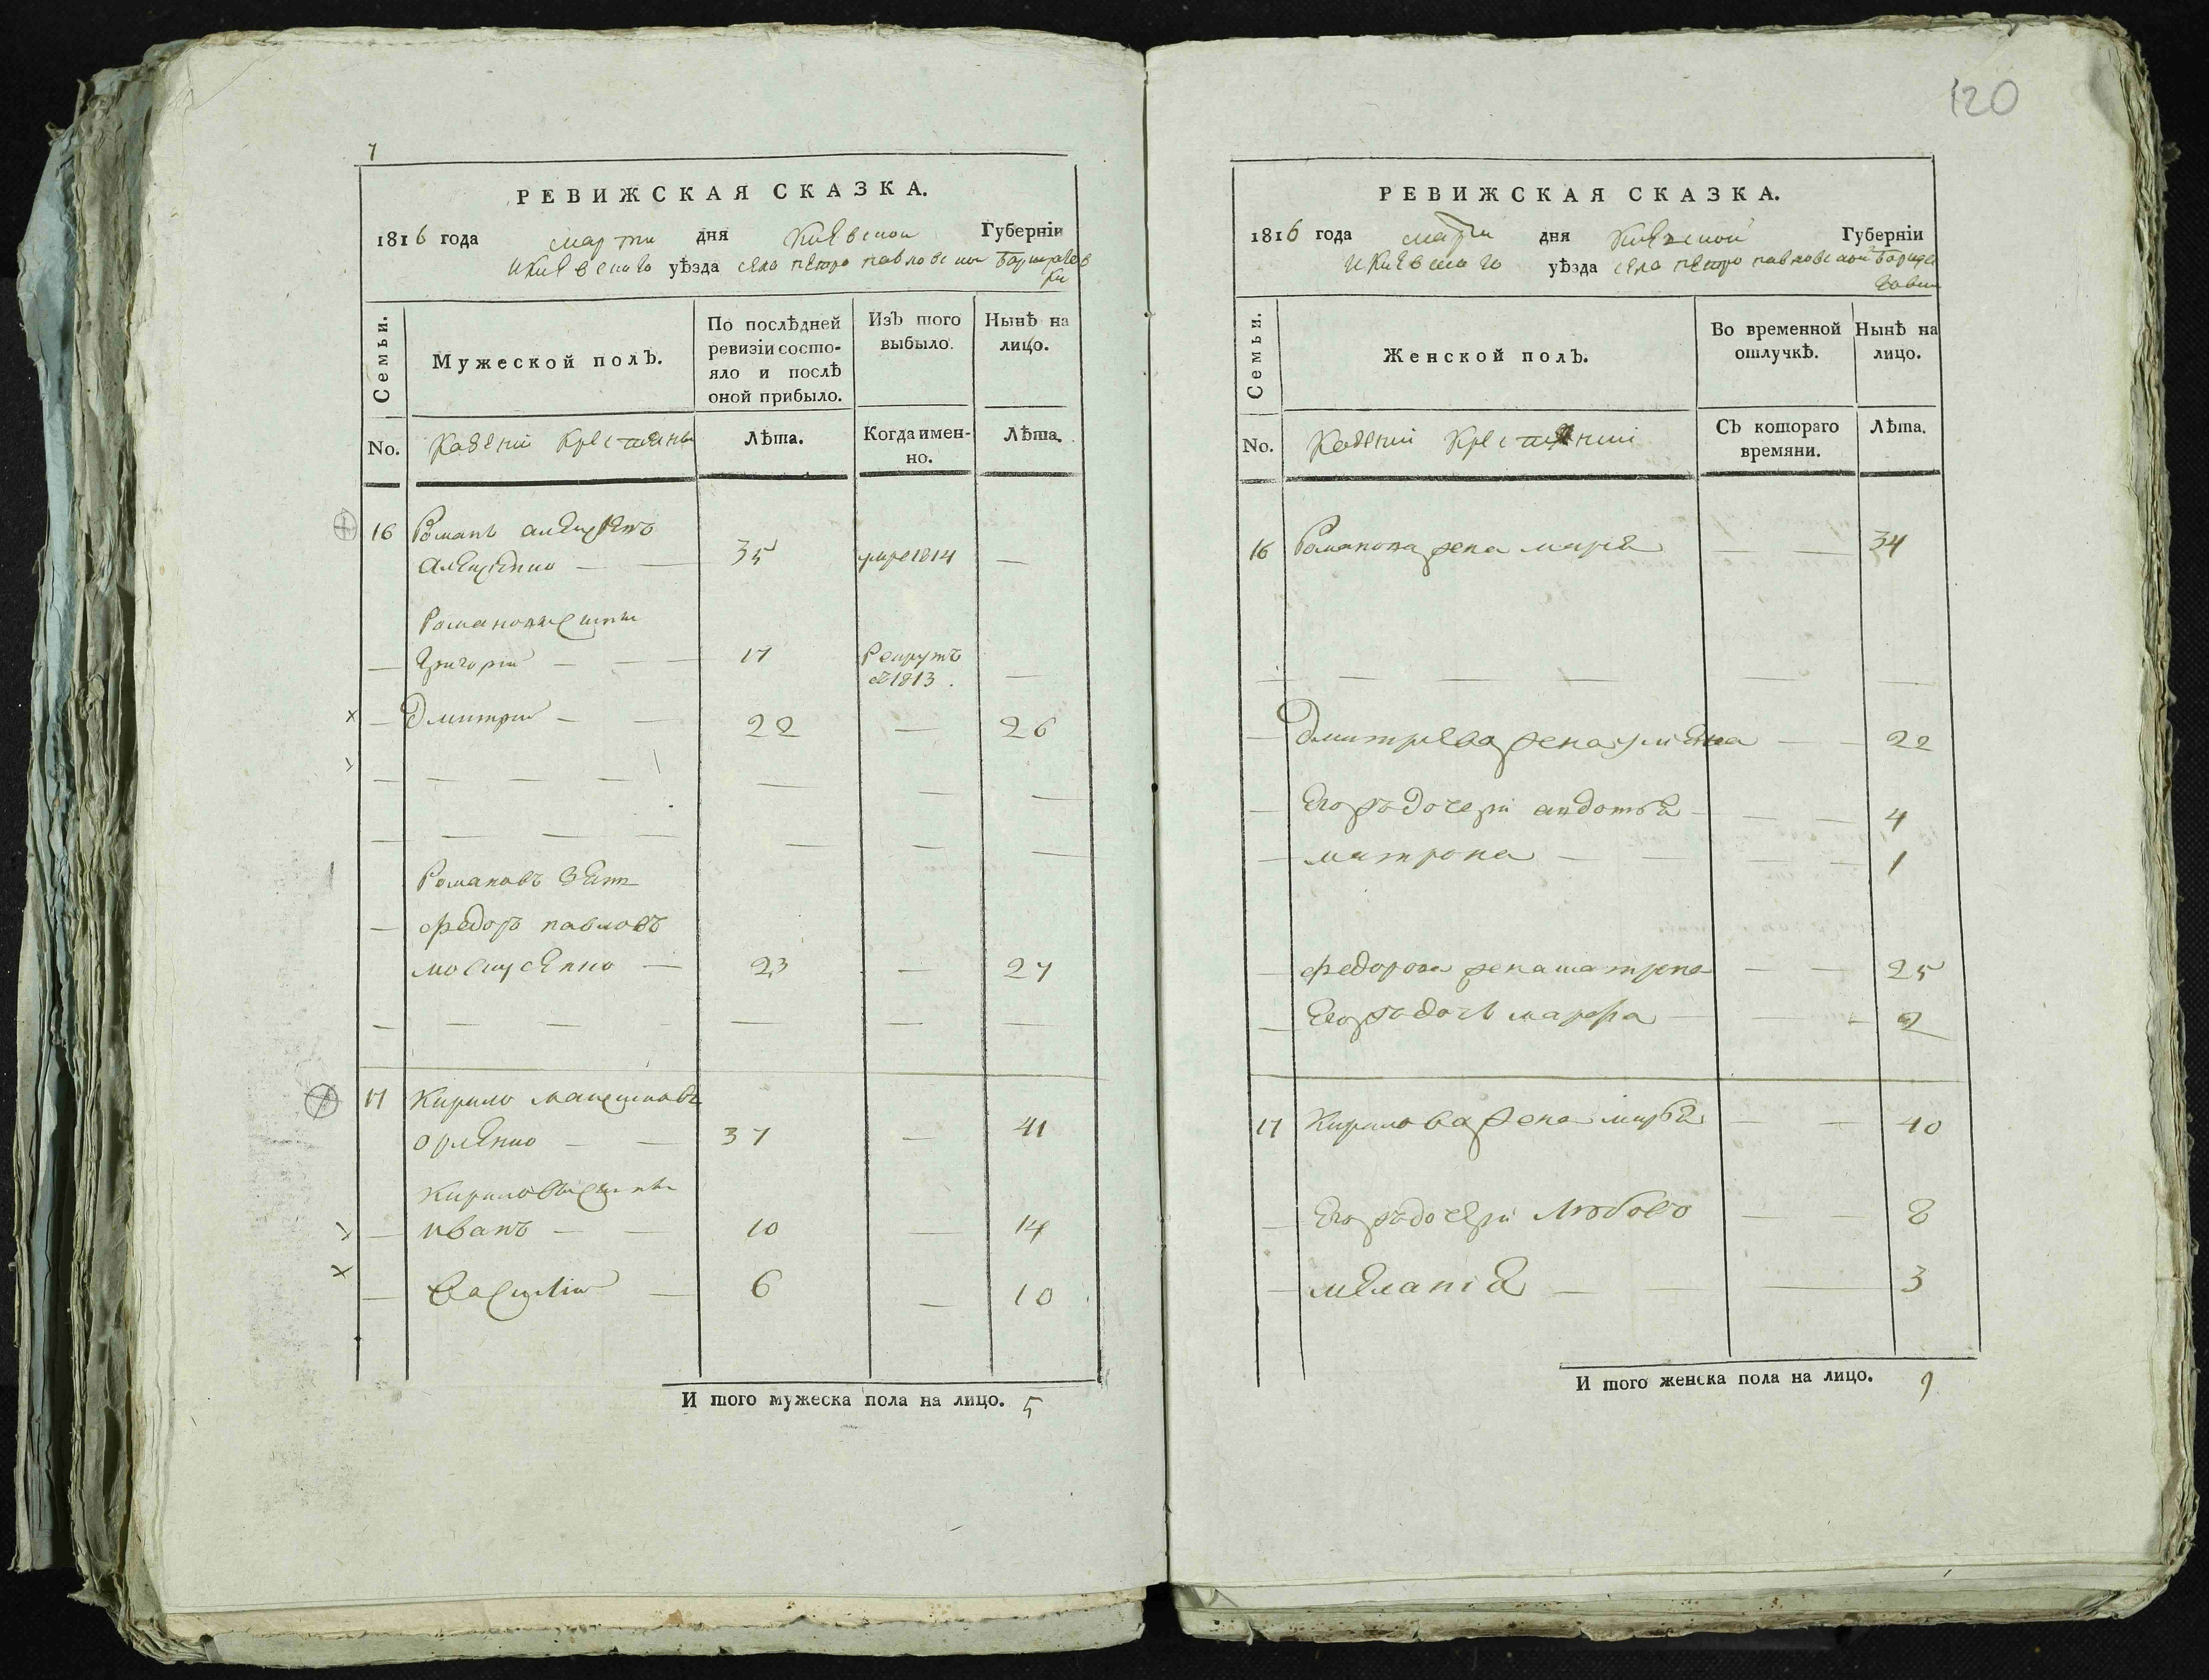 7
РЕВИЖСКАЯ СКАЗКА.
1816 года марта дня Киевской Губерніи
и Киевскаго уѣзда села петро павловской Борщаговки
Семьи.
Мужеской полЪ.
По послѣдней ревизіи состояло и послѣ оной прибыло.
ИзЪ того выбыло.
Нынѣ на лицо.
No.
Казенни Крестяны
Лѣта.
Когда именно.
Лѣта.
16 Романъ алексѣевъ
— — 35 умре 1814 —
Романовы сыны
— Григорій — — 17 Рекрутъ
в 1813. —
— Дмитрий — — 22 — 26
Романовъ зять
— федоръ павловъ
мовсиенко — 23 — 27
17 Кирило
орленко — — 37 — 41
Кириловы сыны
— иванъ — — 10 — 14
— василий — 6 — 10
И того мужеска пола на лицо. 5
120
РЕВИЖСКАЯ СКАЗКА.
1816 года марта дня Киевской Губерніи
и Киевскаго уѣзда села петро павловской Борщаговки
Семьи.
Женской полЪ.
Во временной отлучкѣ.
Нынѣ на лицо.
No.
Казенни Крестянки
СЪ котораго времяни.
Лѣта.
16 Романова жена мария — — 34
— Дмитрева жена улияна — — 22
— Его жъ дочери авдотья — — — 4
— матрона — — — 1
— федорова жена матрона — — 25
— Его жъ дочь марфа — — - 2
17 Кирилова жена — — 40
— Его жъ дочери Любовъ — — 8
— мелания — — — 3
И того женска пола на лицо. 9